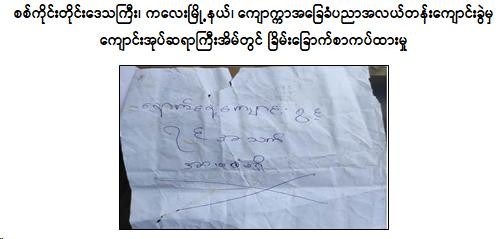 စစ်ကိုင်းတိုင်းဒေသကြီး၊ ကလေးမြို့နယ်၊ ကျောက္ကာအခြေခံပညာအလယ်တန်းကျောင်းခွဲမှ
ကျောင်းအုပ်ဆရာကြီးအိမ်တွင် ခြိမ်းခြောက်စာကပ်ထားမှု
ကျောင်း ဖွင့်
ရင် အသက်